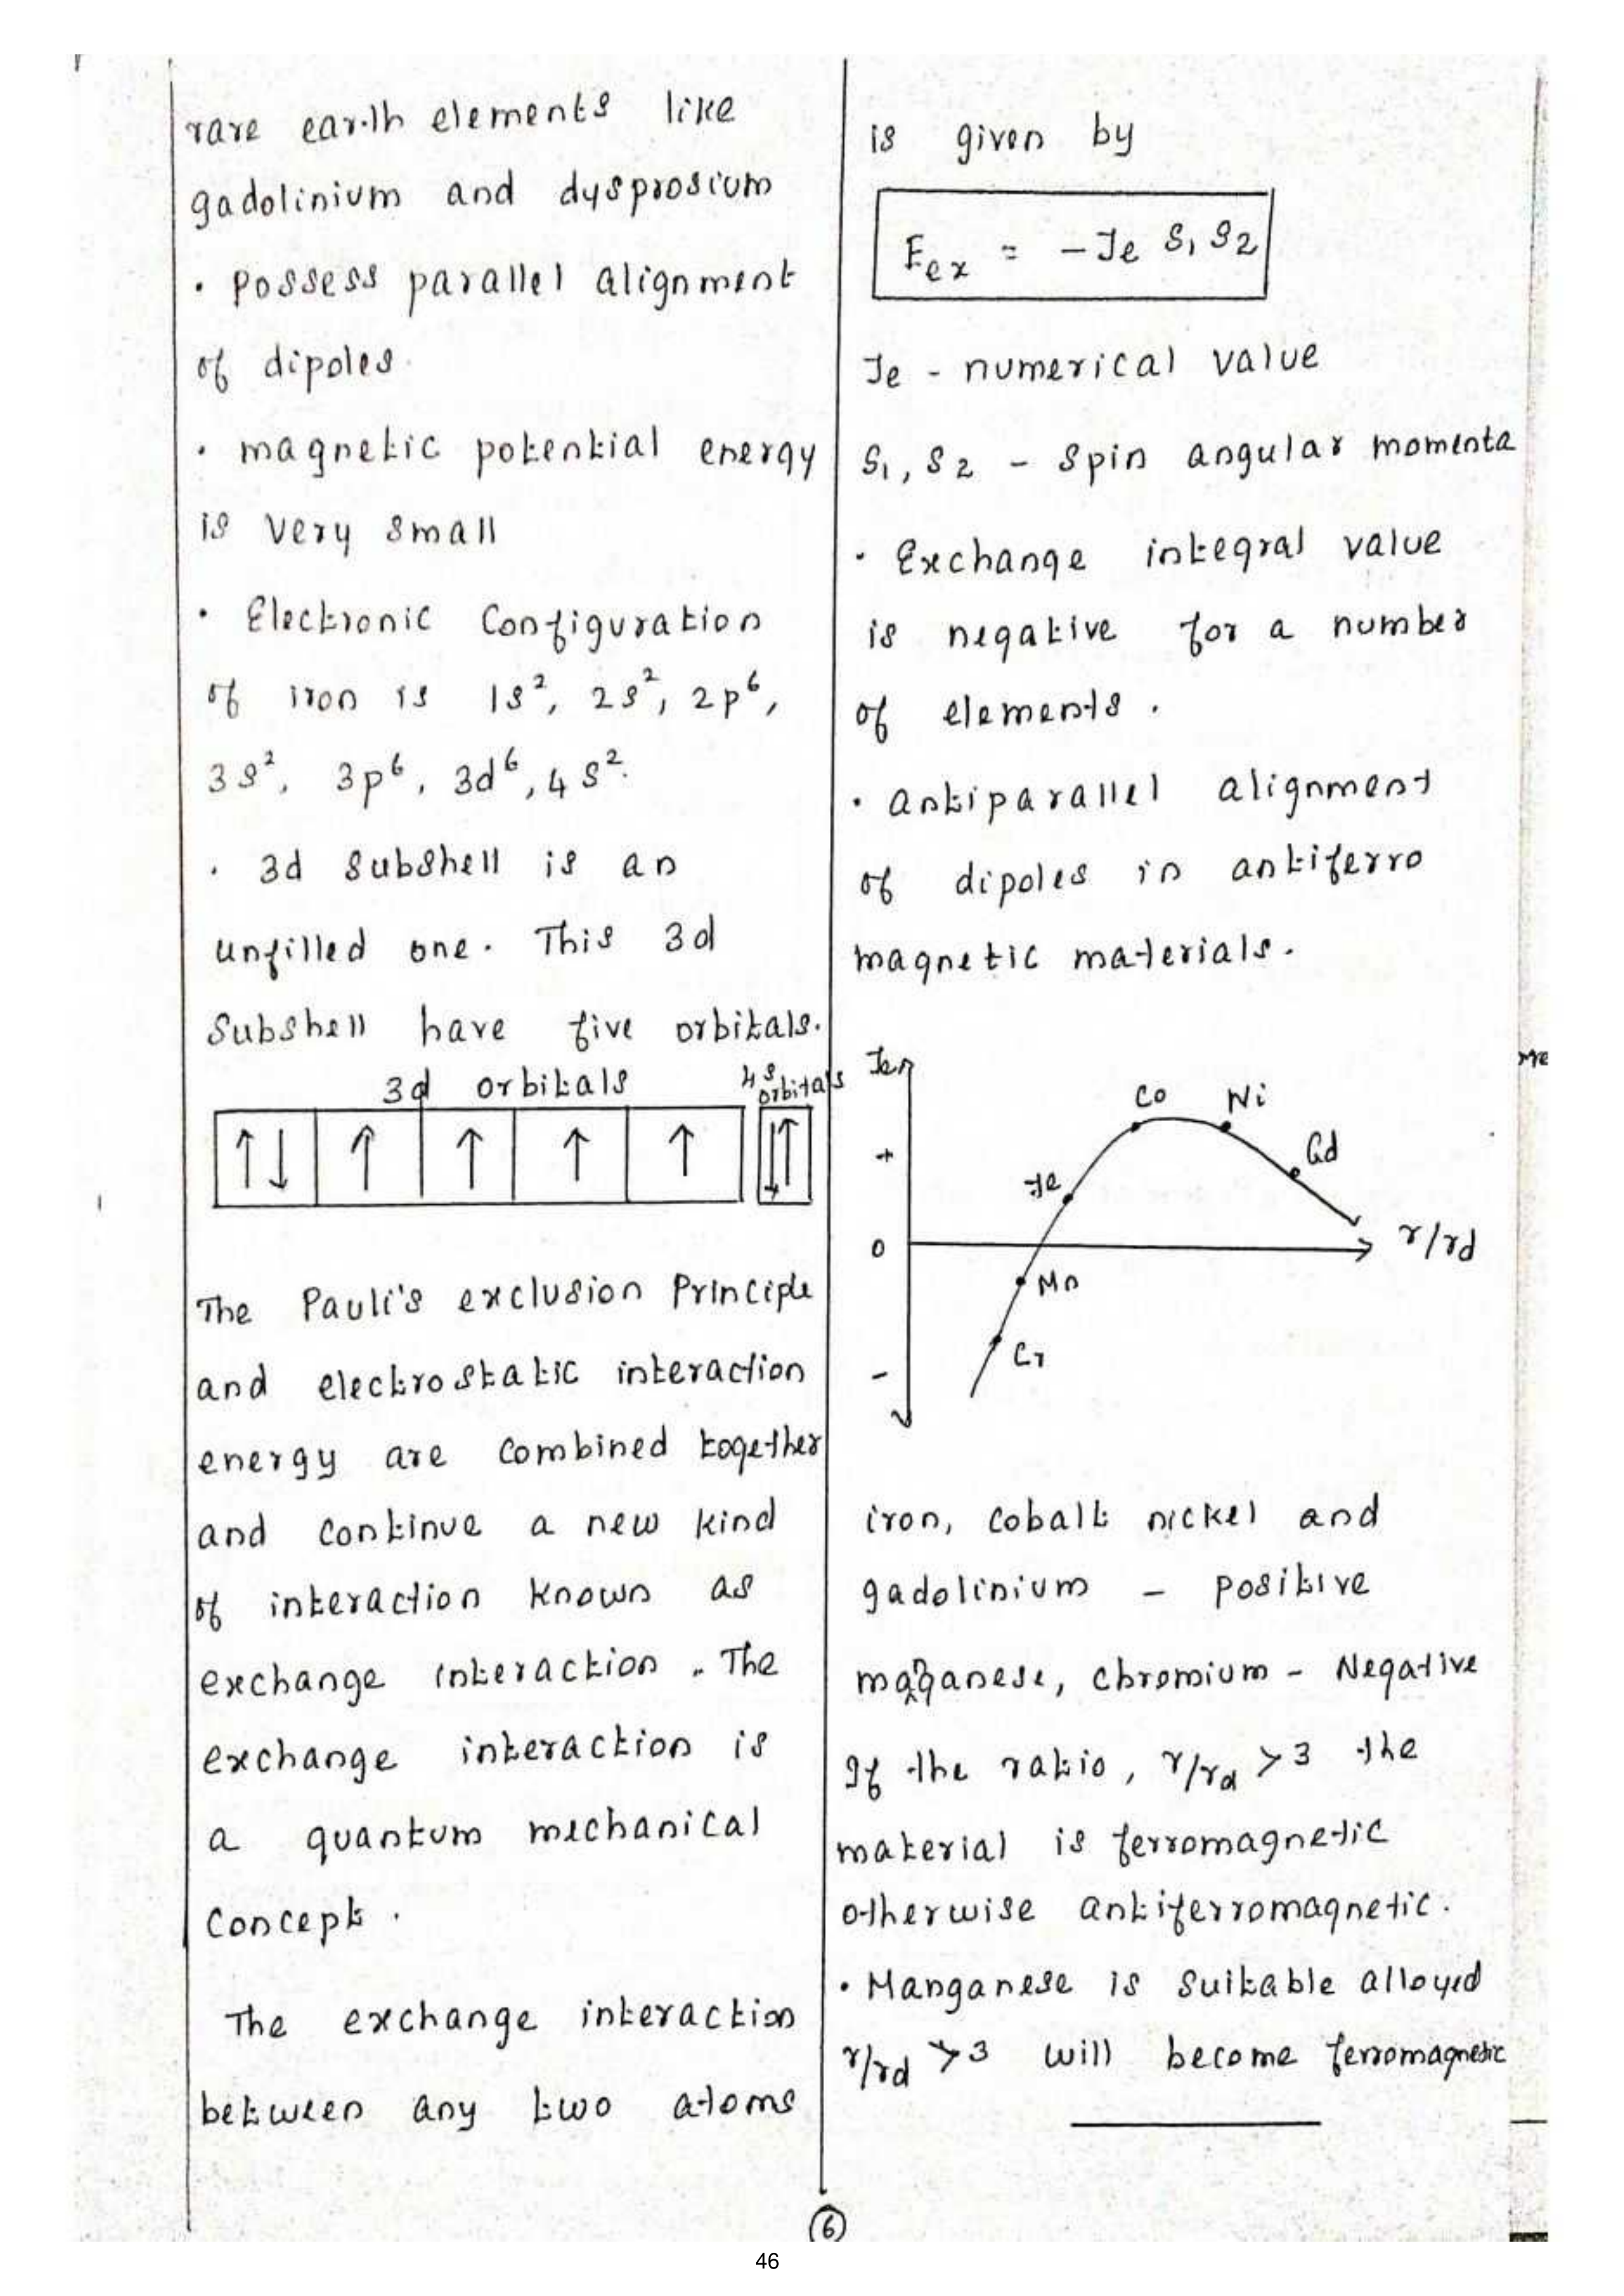 rare earth elements like
gadolinium and dysprosium
• possess parallel alignment
of dipoles.
• magnetic potential energy
is very small
• Electronic Configuration
of iron is 1s², 2s², 2p⁶,
3s², 3p⁶, 3d⁶, 4s².
• 3d subshell is an
unfilled one. This 3d
Subshell have five orbitals.
3d orbitals 4s orbitals
↑↓ ↑ ↑ ↑ ↑ ↓↑
The Pauli's exclusion Principle
and electrostatic interaction
energy are combined together
and continue a new kind
of interaction known as
exchange interaction. The
exchange interaction is
a quantum mechanical
Concept.
The exchange interaction
between any two atoms
is given by
Eex = -Je S₁ S₂
Je - numerical value
S₁, S₂ - Spin angular momenta
• Exchange integral value
is negative for a number
of elements.
• antiparallel alignment
of dipoles in antiferro
magnetic materials.
Je
Co Ni
+ Gd
Fe
0 r/rd
Mn
Cr
-
iron, cobalt nickel and
gadolinium - positive
manganese, chromium - Negative
If the ratio, r/rd > 3 the
material is ferromagnetic
otherwise antiferromagnetic.
• Manganese is suitable alloyed
r/rd > 3 will become ferromagnetic
6
46